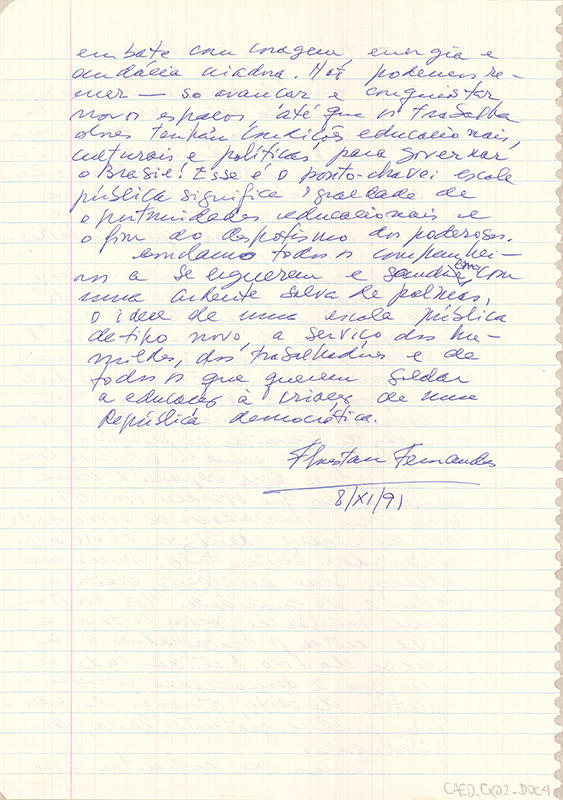 embate com coragem, energia e
audácia criadora. Não podemos re-
mer — só avançar e conquistar
novos espaços, até que os trabalha
dores tenham condições educacionais,
culturais e políticas, para governar
o Brasil! Esse é o ponto-chave: escola
pública significa igualdade de
oportunidades educacionais e
o fim do despotismo dos poderosos.
todos os companhei-
ros a se erguerem e com
uma ardente salva de palmas,
o ideal de uma escola pública
de tipo novo, a serviço dos hu-
mildes, dos trabalhadores e de
todos os que querem soldar
a educação à criação de uma
República democrática.
Florestan Fernandes
8/XI/91
CAED_CX02_DOC4